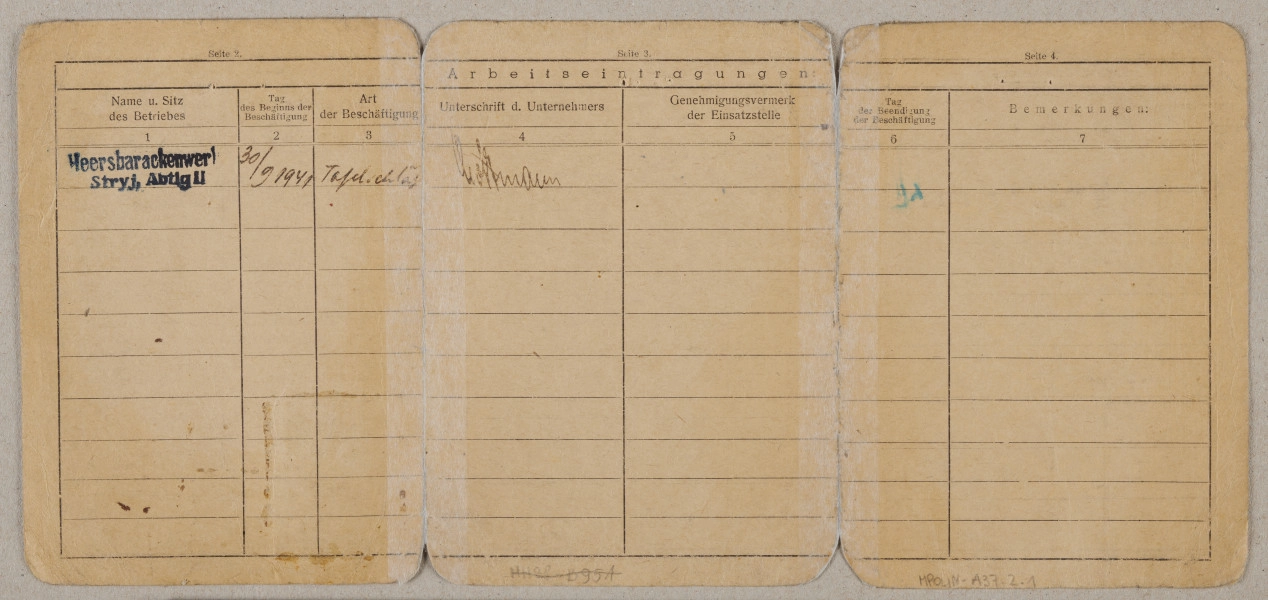 Seite 2.
Name u. Sitz
des Betriebes
Tag
des Beginns der
Beschäftigung
Art
der Beschäftigung
1
2
3
Heersbarackenwerk
Stryj, Abtlg II
30/9 1941
Seite 3.
Arbeitseintragungen:
Unterschrift d. Unternehmers
Genehmigungsvermerk
der Einsatzstelle
4
5
Seite 4.
Tag
der Beendigung
der Beschäftigung
Bemerkungen:
6
7
MPOLIN-A37.2.1